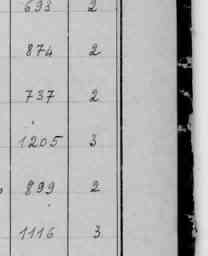 693 2
874 2
737 2
1205 3
899 2
1116 3